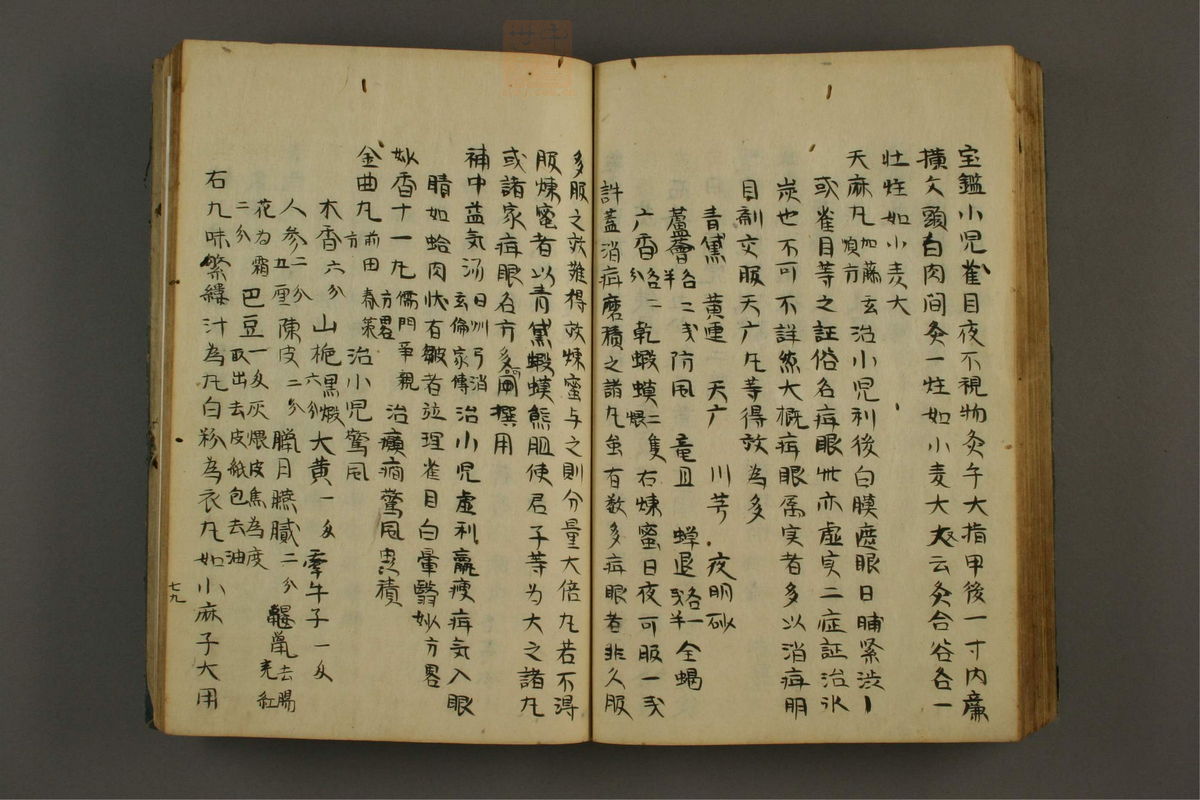 宝鑑小児雀目夜不視物灸手大指甲後一寸内廉
横文頭白肉間灸一炷如小麦大又云灸合谷各一
壮炷如小麦大
天麻丸加藤玄順方治小児利後白膜遮眼日晡緊渋
或雀目等之証俗名疳眼此亦虚実二症証治氷
炭也不可不詳然大概疳眼属実者多以消疳明
目剤交服天麻丸等得效為多
青黛 黄連 天麻 川芎 夜明砂
蘆薈各二戋半 防風 竜胆 蝉退各一戋半 全蝎
麝香各二分 乾蝦蟆二隻煨 右煉蜜日夜可服一戋
許蓋消疳磨積之諸丸虽有数多疳眼者非久服
多服之效難得故煉蜜与之則分量大倍丸若不得
服煉蜜者以青黛蝦蟆熊胆使君子等為大之諸丸
或諸家疳眼名方多撰用
補中益気湯 玄倫家傳 治小児虚利羸痩疳気入眼
睛如蛤肉状有皺者並理雀目白暈翳妙方畧
妙香十一丸儒門事親方畧 治癲癇驚風患積
金曲丸前田春策方 治小児驚風
木香六分 山梔黒煆六分 大黄一匁 牽牛子一匁
人参二分五厘 陳皮二分 臘月臙膩二分 鼴鼠去腸
花為霜 巴豆一匁灰煨皮焦為度
二分 取出去皮紙包去油
右九味繁縷汁為丸白粉為衣丸如小麻子大用
七九